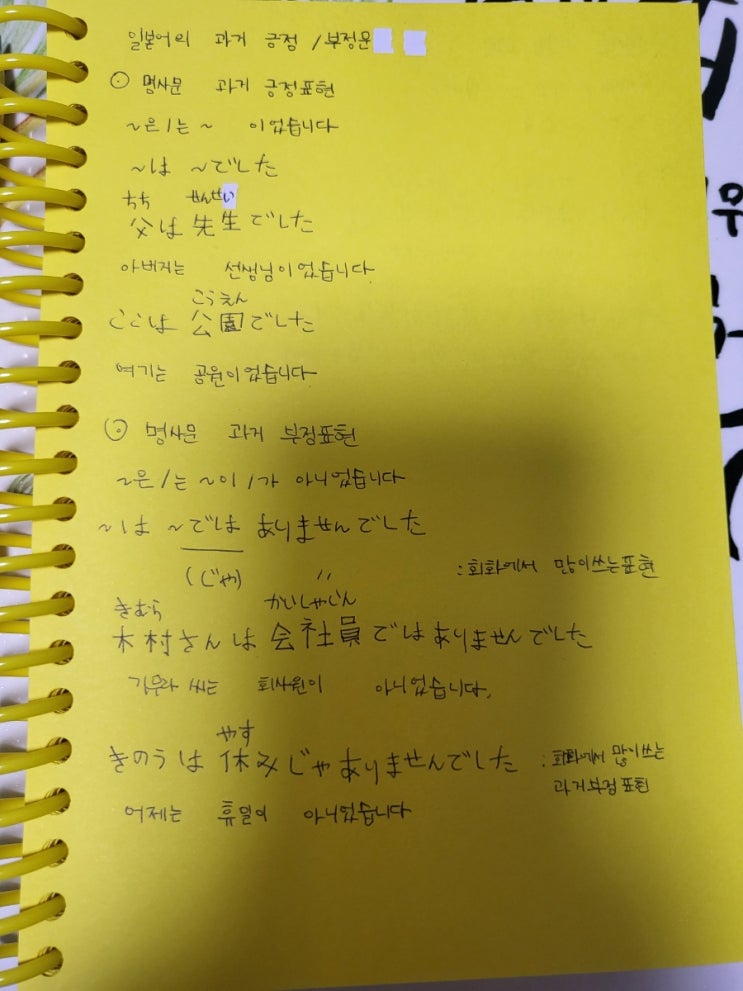 일본어의 과거 긍정 / 부정문
⊙ 명사문 과거 긍정표현
~은 / 는 ~ 이었습니다
~は ~でした
ちち せんせい
父は 先生でした
아버지는 선생님이었습니다
こうえん
ここは 公園でした
여기는 공원이었습니다
⊙ 명사문 과거 부정표현
~은 / 는 ~이 / 가 아니었습니다
~は ~では ありませんでした
(じゃ) 〃 : 회화에서 많이쓰는표현
きむら かいしゃじん
木村さんは 会社員ではありませんでした
기무라 씨는 회사원이 아니었습니다.
やす
きのうは 休みじゃありませんでした : 회화에서 많이쓰는
과거부정표현
어제는 휴일이 아니었습니다